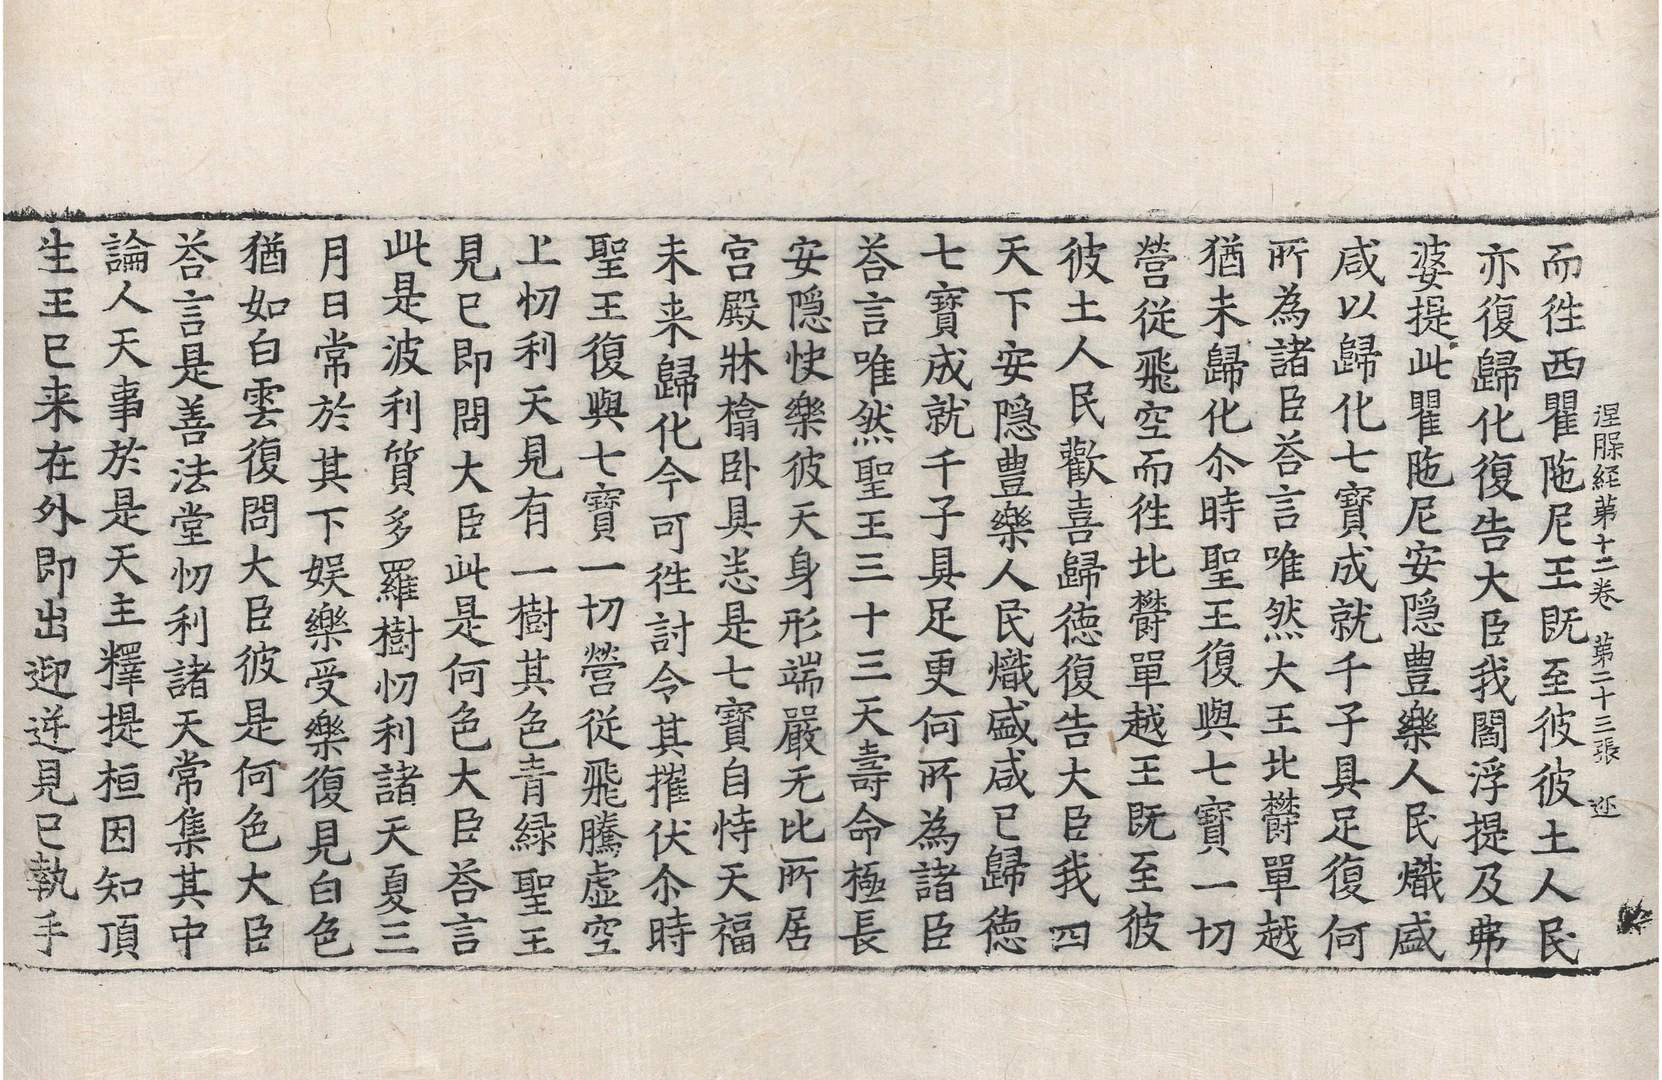 涅槃経第十二卷 第二十三張 迩
而徃西瞿陁尼王既至彼彼土人民
亦復歸化復告大臣我閻浮提及弗
婆提此瞿陁尼安隠豊樂人民熾盛
咸以歸化七寳成就千子具足復何
所為諸臣荅言唯然大王北欝單越
猶未歸化尒時聖王復與七寳一切
營従飛空而徃北欝單越王既至彼
彼土人民歡喜歸徳復告大臣我四
天下安隠豊樂人民熾盛咸已歸徳
七寳成就千子具足更何所為諸臣
荅言唯然聖王三十三天壽命極長
安隠快樂彼天身形端嚴无比所居
宫殿牀榻卧具悉是七寳自恃天福
未来歸化今可徃討令其摧伏尒時
聖王復與七寳一切營従飛騰虚空
上忉利天見有一樹其色青緑聖王
見已即問大臣此是何色大臣荅言
此是波利質多羅樹忉利諸天夏三
月日常於其下娱樂受樂復見白色
猶如白雲復問大臣彼是何色大臣
荅言是善法堂忉利諸天常集其中
論人天事於是天主釋提桓因知頂
生王已来在外即出迎逆見已執手